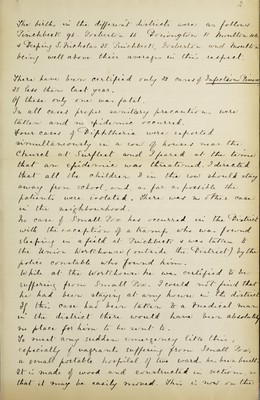 2
The births in the different districts were as follows
Pinchbeck 98. Gosberton 56 Donington 46 Moulton
& Deeping S. Nicholas 35. Pinchbeck, Gosberton and Moulton
being well above their averages in this respect.
There have been certified only 28 cases of Infectious
35 less than last year.
Of these only one was fatal.
In all cases proper sanitary precautions were
taken and no epidemic occurred.
Four cases of Diphtheria were reported
simultaneously in a row of houses near the
Church at Surfleet and I feared at the time
that an epidemic was threatened. I directed
that all the children in the row should stay
away from school, and as far as possible the
patients were isolated. There was no other case
in the neighbourhood.
No case of Small Pox has occurred in the District
with the exception of a tramp who was found
sleeping in a field at Pinchbeck & was taken to
the Union Workhouse (outside the District) by the
police constable who found him.
While at the Workhouse he was certified to be
suffering from Small Pox. I could not find that
he had been staying at any house in the district.
If this case had been taken to a medical man
in the district there would have been absolutely
no place for him to be sent to.
To meet any sudden emergency like this,
especially vagrants suffering from Small Pox,
a small portable hospital of two wards has been built.
It is made of wood and constructed in sections so
that it may be easily moved. This is now on the